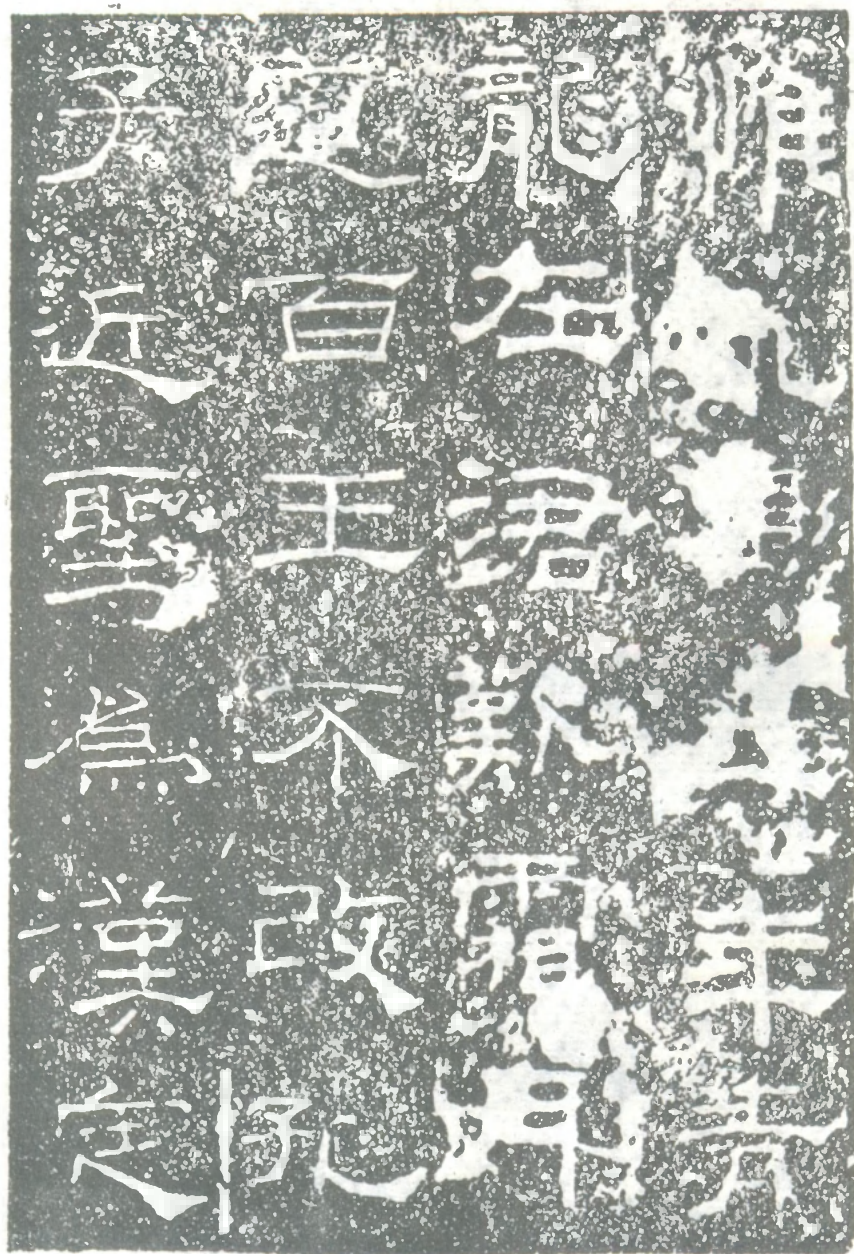 惟年青
龍在涒歎霜月
道百王不改孔
子近聖爲漢定